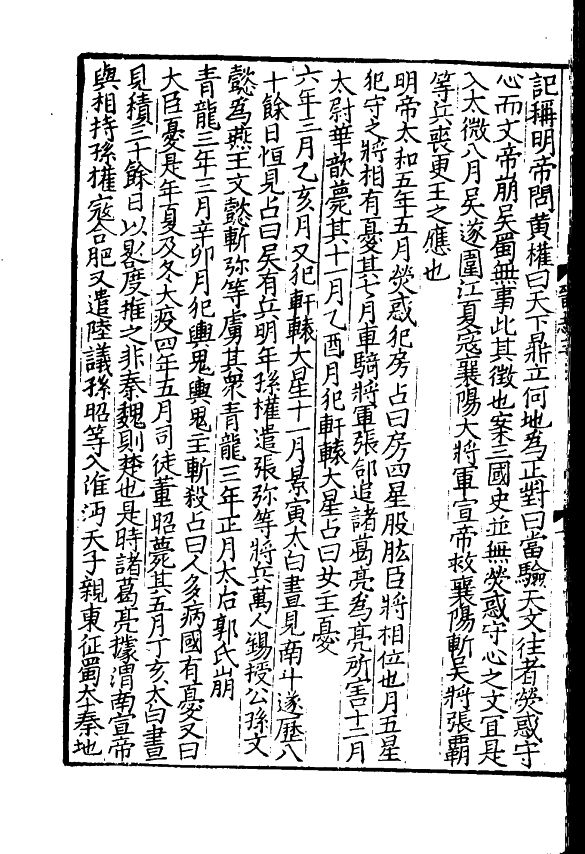 記稱明帝問黄權曰天下鼎立何地為正對曰當驗天文往者熒惑守
心而文帝崩吴蜀無事此其徴也案三國史並無熒惑守心之文宜是
入太微八月吴遂圍江夏寇襄陽大將軍宣帝救襄陽斬吴將張霸
等兵喪更王之應也
明帝太和五年五月熒惑犯房占曰房四星股肱臣將相位也月五星
犯守之將相有憂其七月車騎將軍張郃追諸葛亮為亮所害十二月
太尉華歆薨其十一月乙酉月犯軒轅大星占曰女主憂
六年三月乙亥月又犯軒轅大星十一月景寅太白晝見南斗遂歷八
十餘日恒見占曰吴有兵明年孫權遣張弥等將兵萬人錫授公孫文
懿為燕王文懿斬弥等虜其衆青龍三年正月太后郭氏崩
青龍三年三月辛卯月犯輿鬼輿鬼主斬殺占曰人多病國有憂又曰
大臣憂是年夏及冬大疫四年五月司徒董昭薨其五月丁亥太白晝
見積三十餘日以晷度推之非秦魏則楚也是時諸葛亮據渭南宣帝
與相持孫權寇合肥又遣陸議孫昭等入淮沔天子親東征蜀本秦地